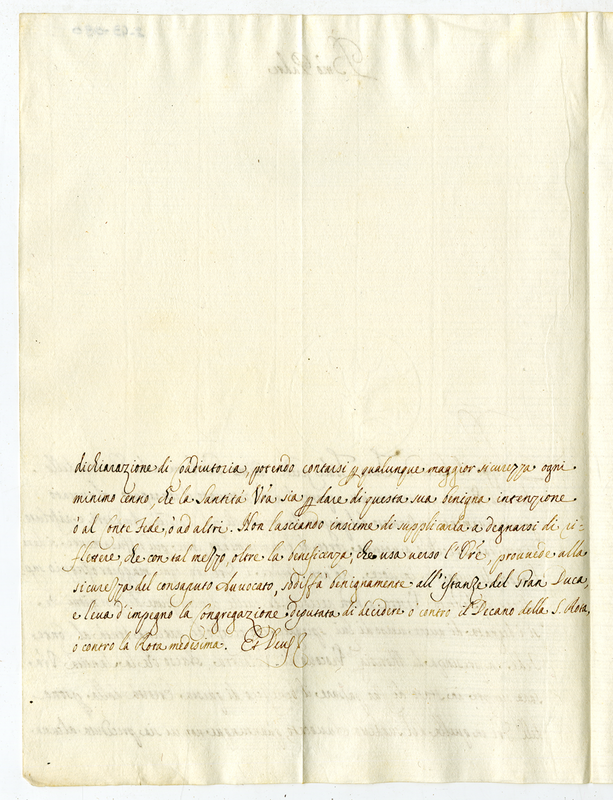 dichiarazione di coadiutoria, potendo contarsi p qualunque maggior sicurezza ogni
minimo cenno, che la Santità Vra sia p dare di questa sua benigna intenzione
ò al Conte Fede, ò ad altri. Non lasciando insieme di supplicarla a degnarsi di ri=
flettere, che con tal mezzo, oltre la beneficenza, che usa verso l'Ore, provvede alla
sicurezza del consaputo Avvocato, sodisfà benignamente all'istanze del Gran Duca,
e leva d'impegno la Congregazione deputata di decidere ò contro il Decano della S. Rota,
o contro la Rota medesima. Et Deus